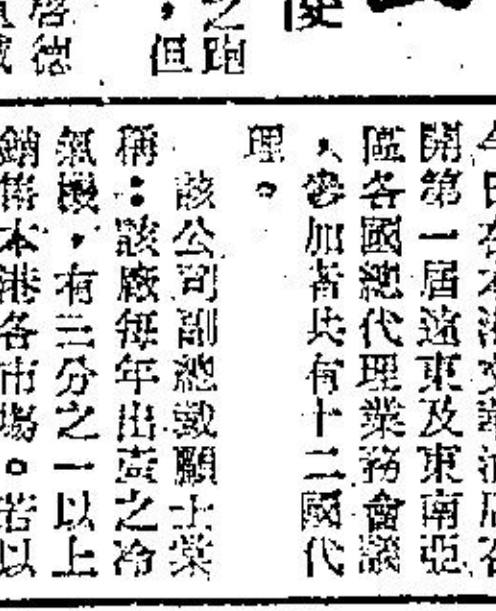 之跑
，但
啓德
今日在本港文華酒店召
開第一屆遠東及東南亞
區各國總代理業務會議
，參加者共有十二國代
理。
該公司副總戴顯士業
稱：該廠每年出產之冷
氣機，有三分之一以上
銷售本港各市場。若以